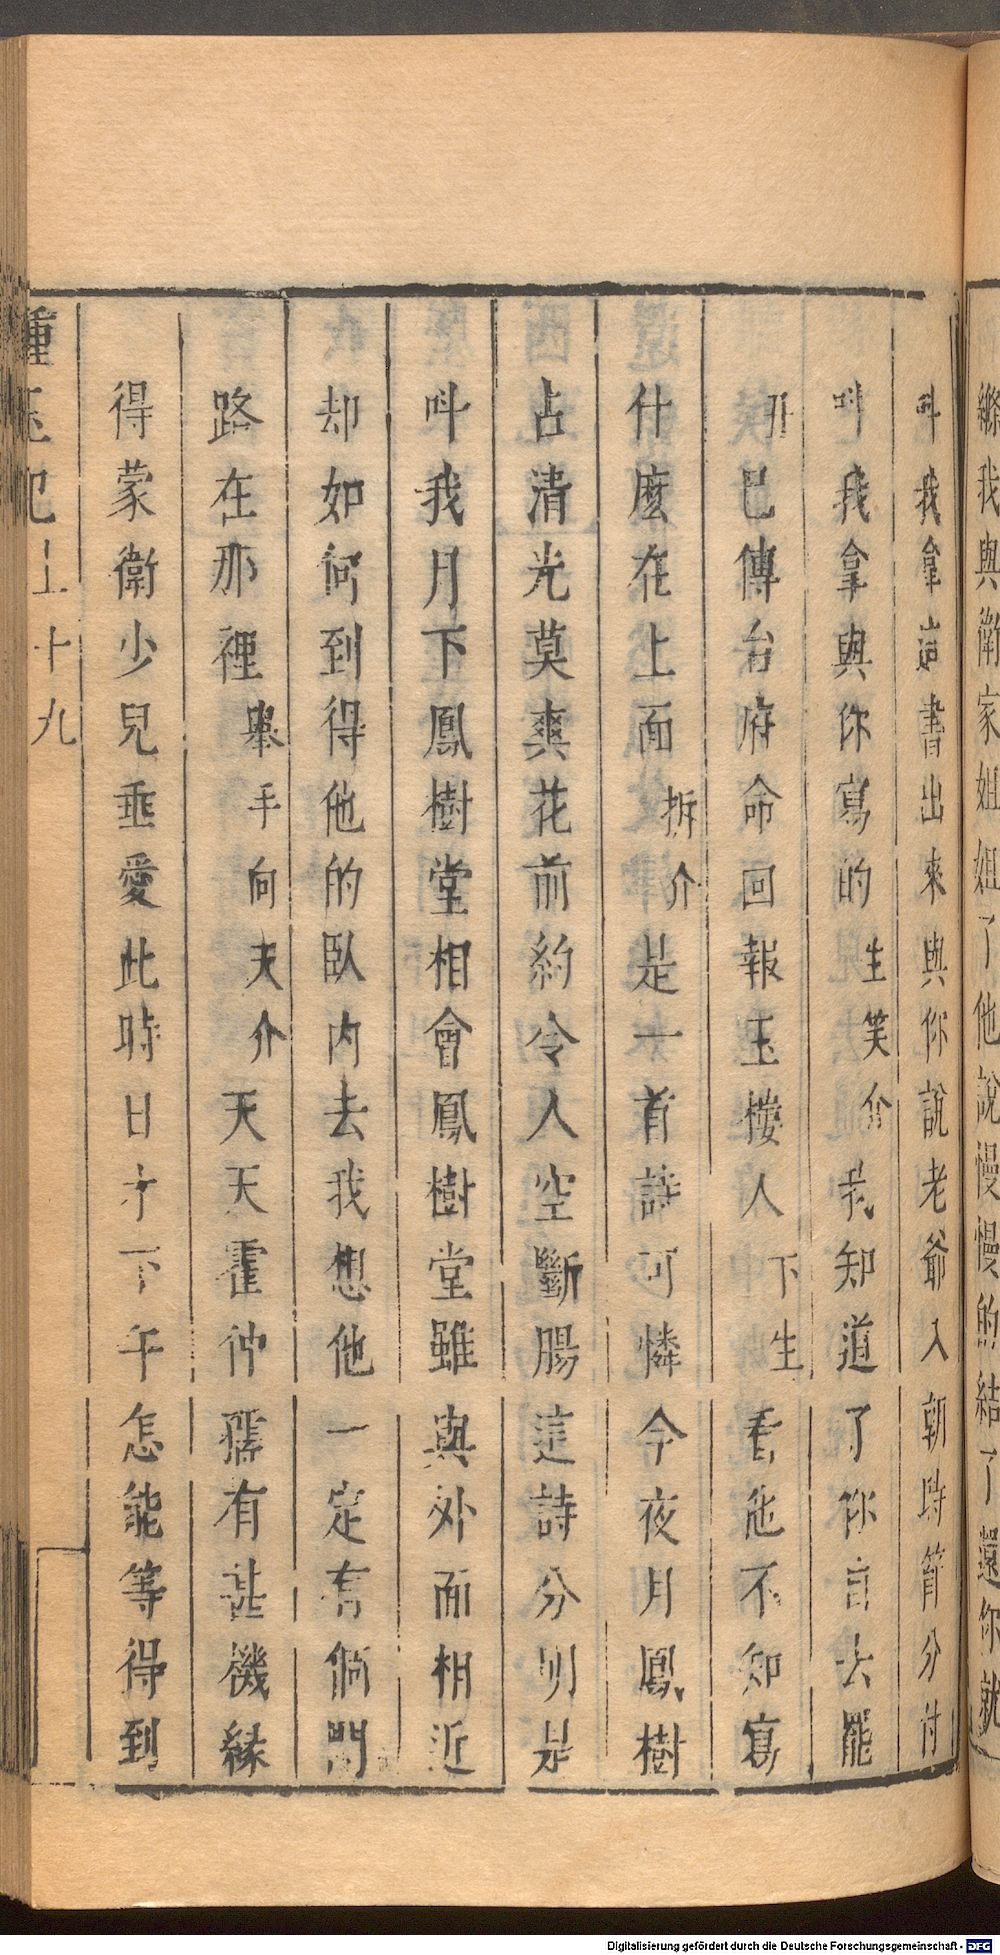 縧我與衛家姐姐了他說慢慢的結了還你就
叫我拿這書出來與你說老爺入朝時節分付
叫我拿與你寫的生笑介我知道了你言去罷
丑已傳台府命回報玉樓人下生看他不知寫
什麼在上面拆介是一首詩可憐今夜月鳳樹
占清光莫爽花前約令人空斷腸這詩分明是
叫我月下鳳樹堂相會鳳樹堂雖與外面相近
却如何到得他的臥內去我想他一定有個門
路在那裡舉手向天介天天霍仲孺有甚機緣
得蒙衛少兒垂愛此時日才下午怎能等得到
種玉記上十九
Digitalisierung gefördert durch die Deutsche Forschungsgemeinschaft - DFG